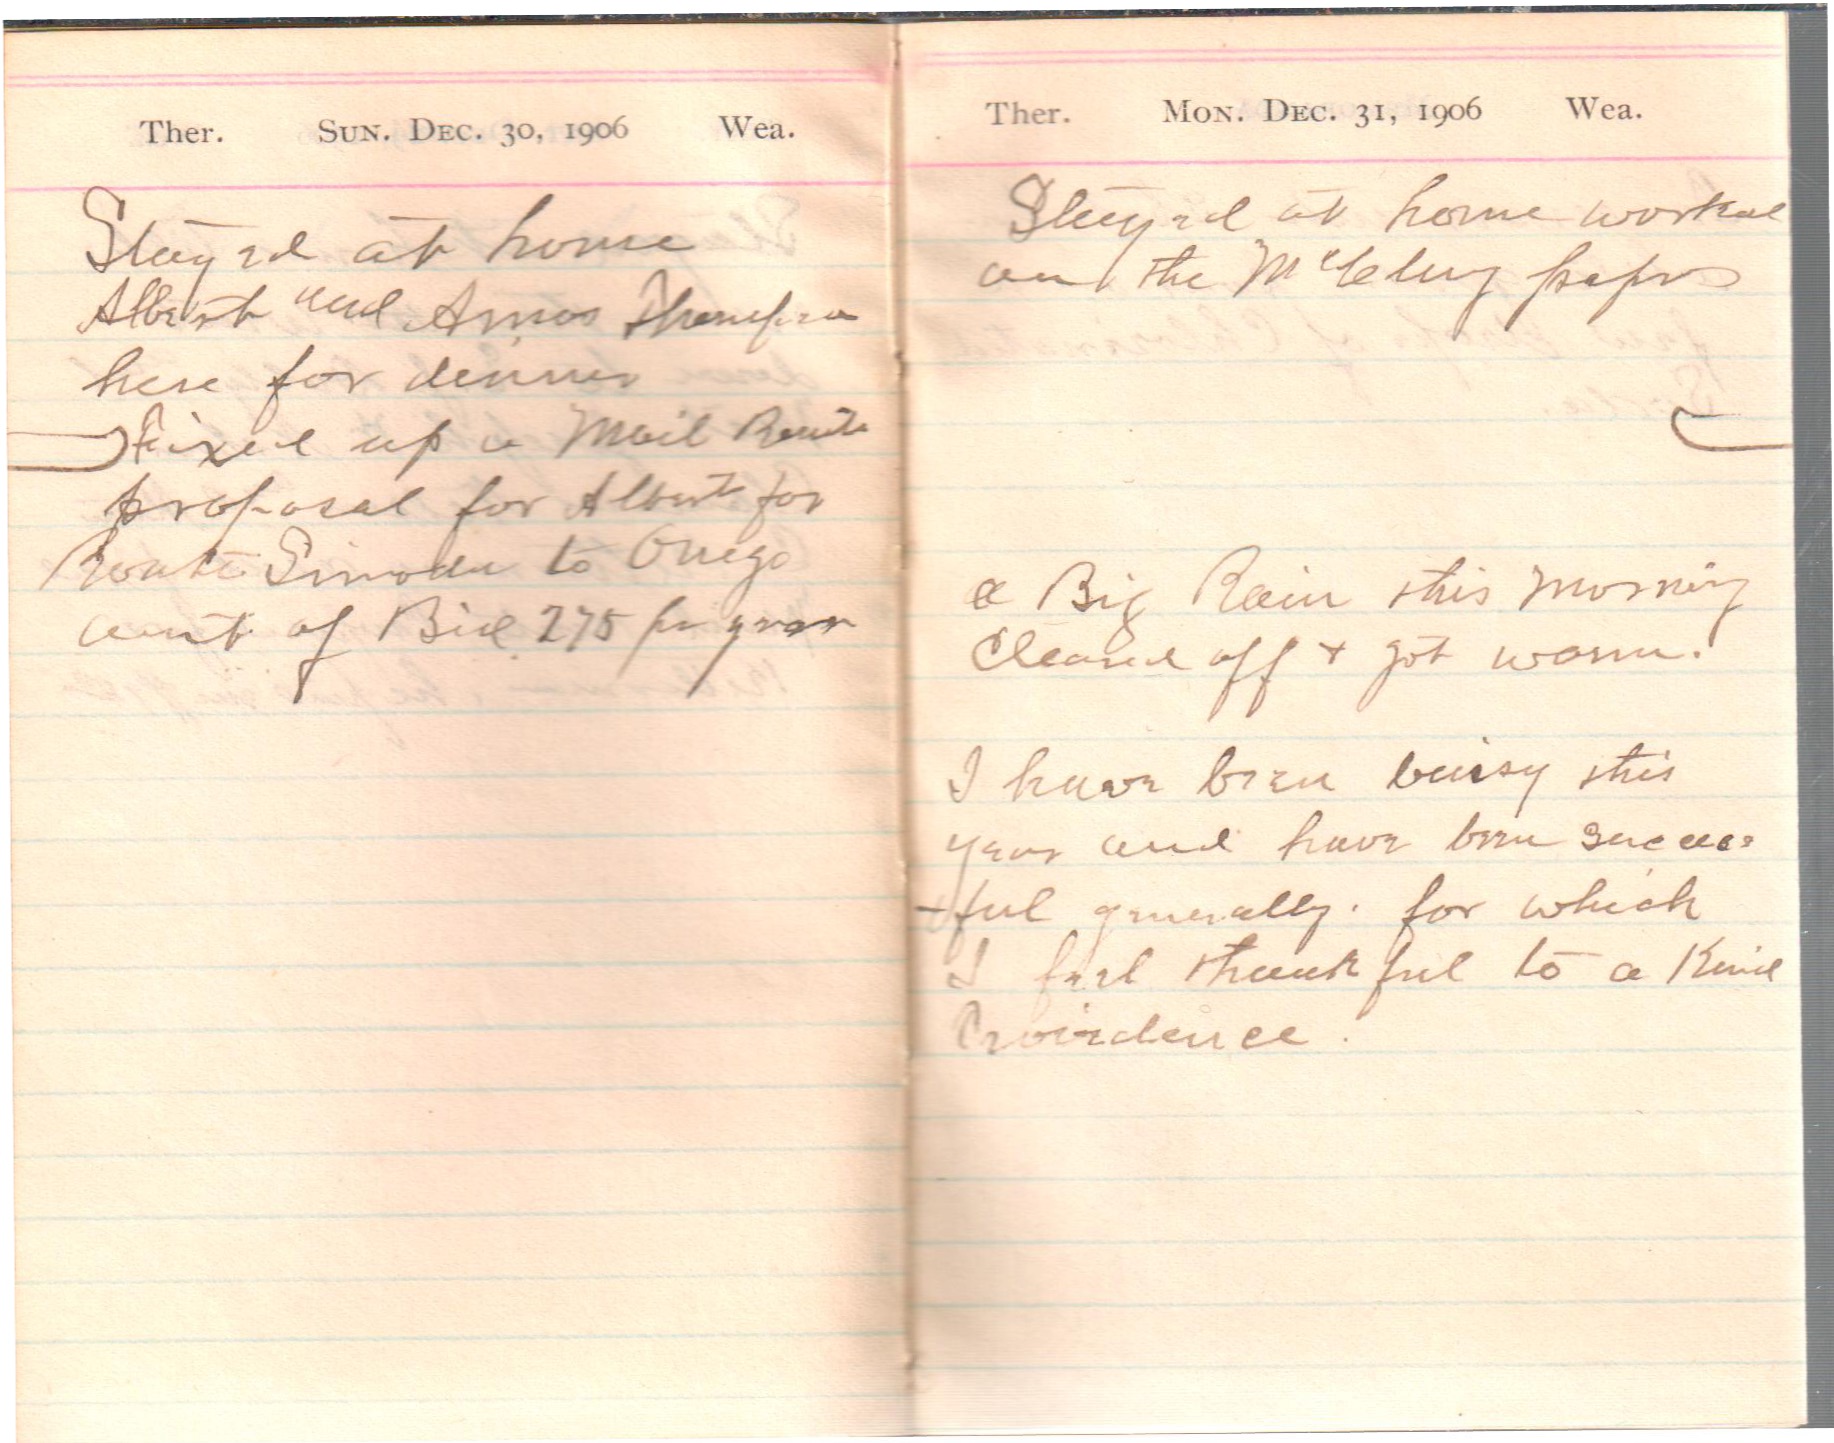 Ther. Sun. Dec. 30, 1906 Wea.
Stayed at home
Albert and Amos Thompson
here for dinner
Fixed up a Mail Route
proposal for Albert for
Route Sinoda to Onego
amt of Bid 275 pr year
Ther. Mon. Dec. 31, 1906 Wea.
Stayed at home worked
on the McClung papers
a Big Rain this Morning
Cleared off + got warm.
I have been buisy this
year and have been success
-ful generally. for which
I feel thankful to a Kind
Providence.